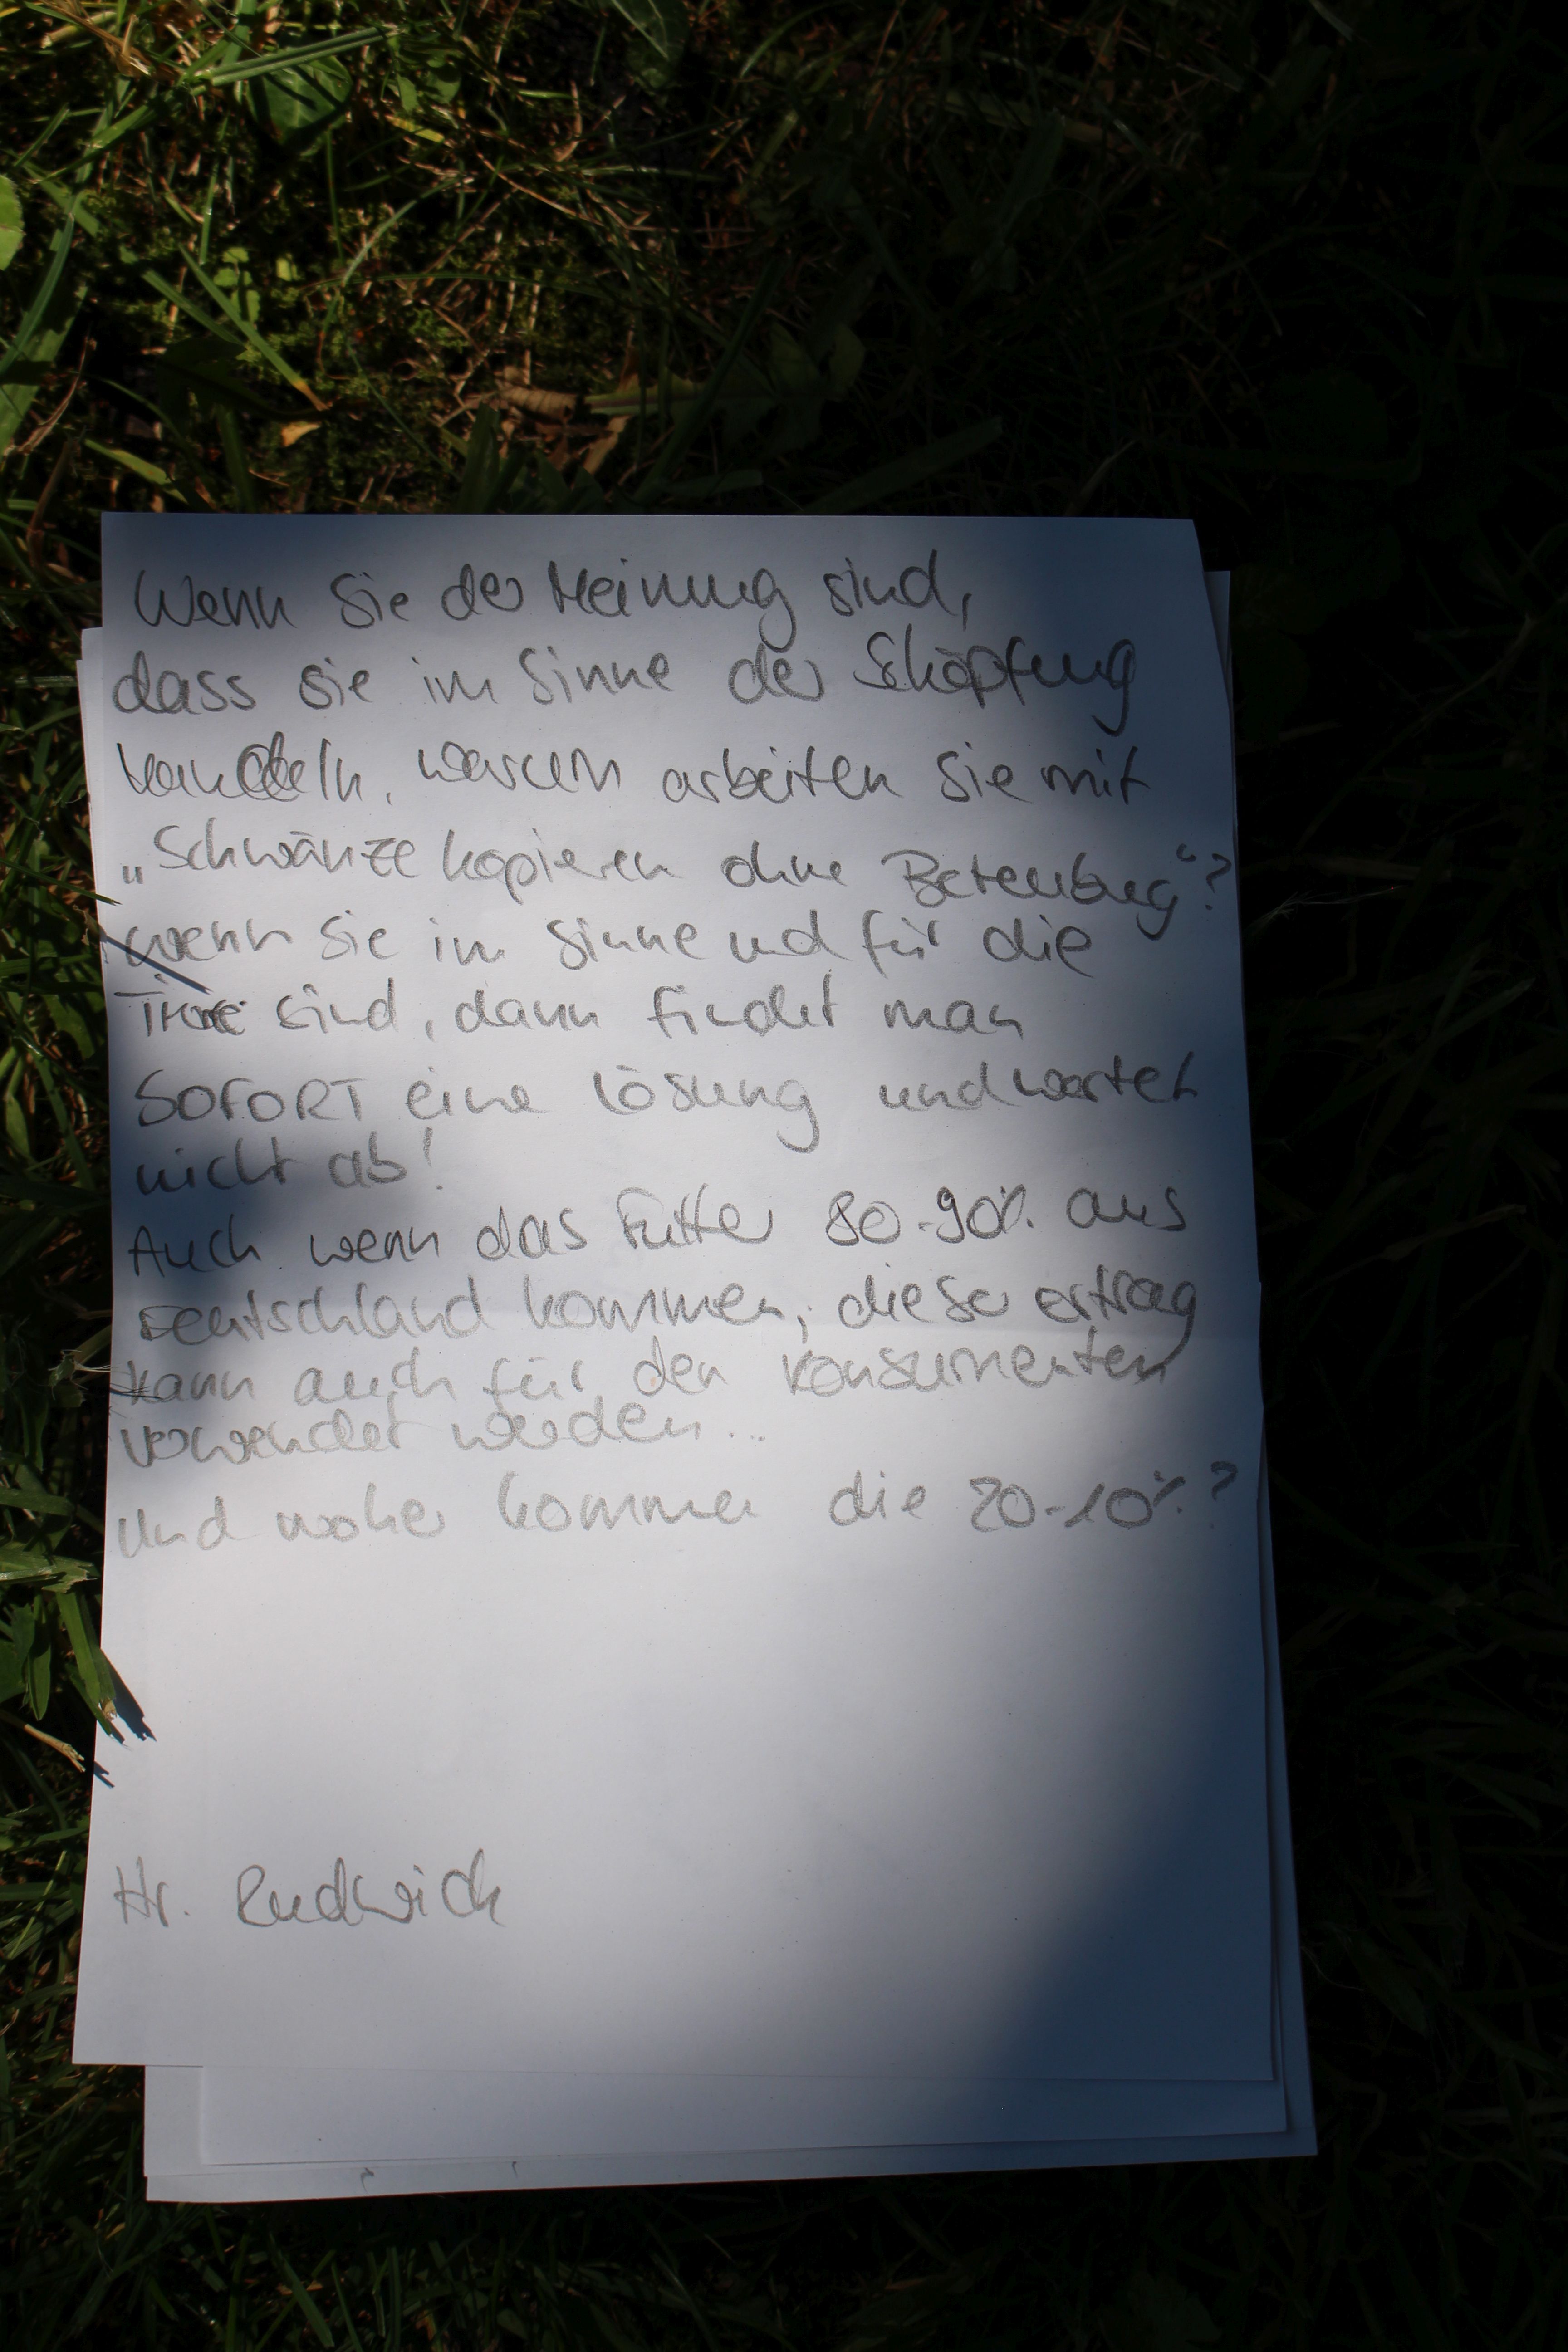 Wenn Sie der Meinung sind,
dass sie im Sinne der Schöpfung
handeln, warum arbeiten Sie mit
„Schwänze kopieren ohne Beteubug“?
wenn Sie im Sinne und für die
Tiere sind, dann findet man
SOFORT eine Lösung und wartet
nicht ab!
Auch wenn das Futter 80-90% aus
Deutschland kommen, dieser ertrag
kann auch für den Konsumenten
verwendet werden...
Und woher kommen die 20-10%?
Hr.